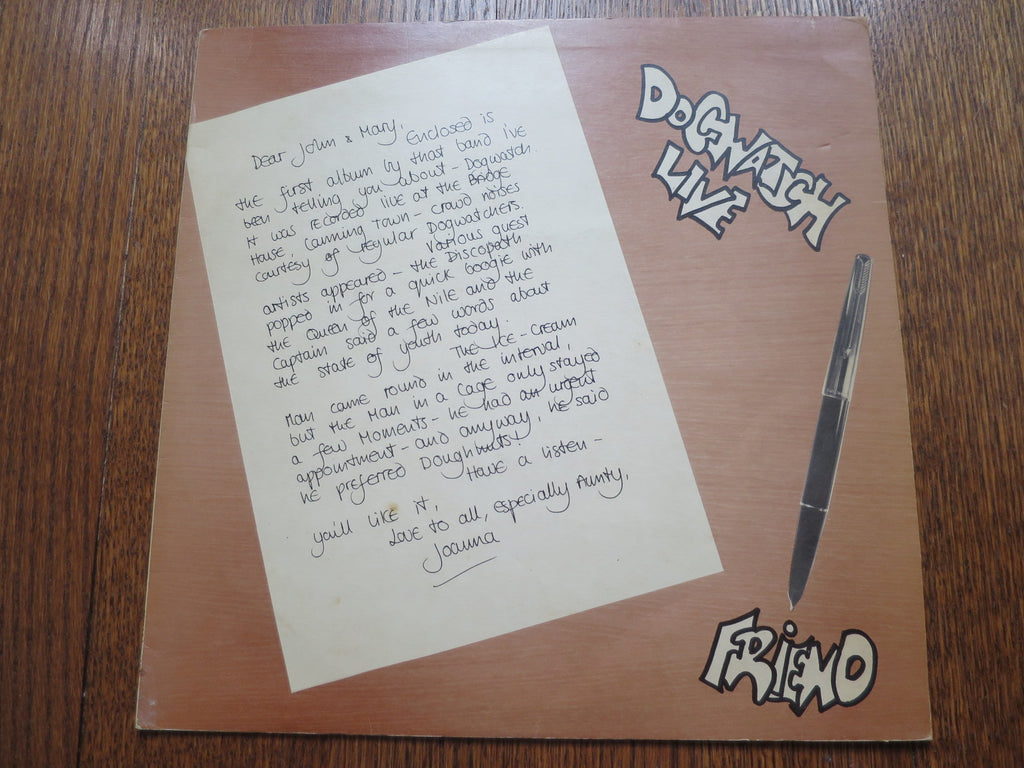 Dear John & Mary,
Enclosed is
the first album by that band I've
been telling you about - Dogwatch.
It was recorded live at the Bridge
House, Canning Town - crowd noises
courtesy of regular Dogwatchers.
Various guest
artists appeared - the Discopath
popped in for a quick boogie with
the Queen of the Nile and the
Captain said a few words about
the state of youth today.
The Ice-Cream
Man came round in the interval,
but the Man in a Cage only stayed
a few Moments - he had an urgent
appointment - and anyway, he said
he preferred Doughnuts!
Have a listen -
you'll like it,
Love to all, especially Aunty,
Joanna
DOGWATCH
LIVE
FRIEND